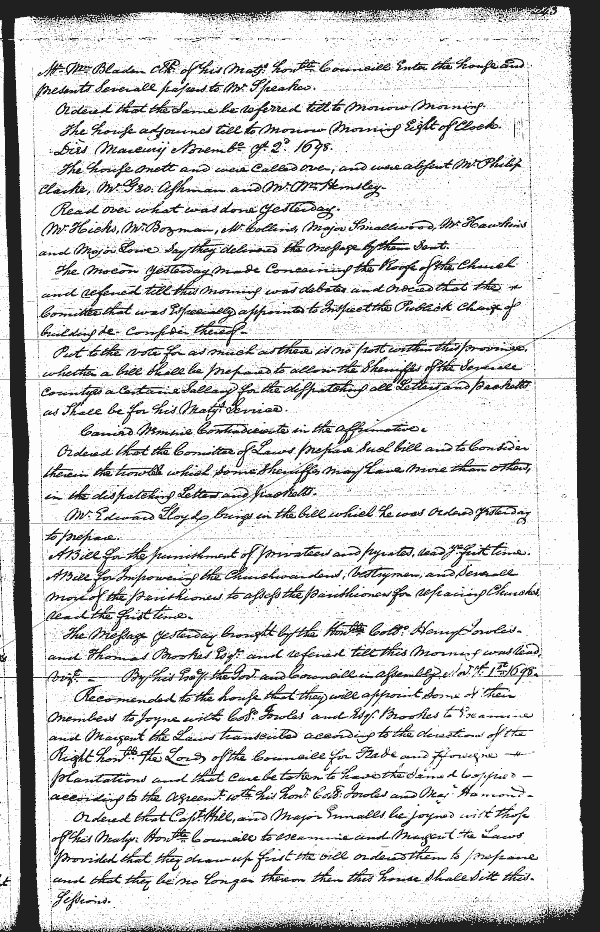 Mr. Wm. Bladen Clk. of his Matys. honble. Councill Enter the house and
presents Severall papers to Mr. Speaker.
Ordered that the Same be referred till to Morrow Morning
The house adjournes till to Morrow Morning Eight of Clock.
Dies Mercurij Novembr. ye. 2d. 1698.
The house mett and were Called over, and were absent Mr. Philip
Clarke, Mr. Geo. Ashman and Mr. Wm. Hemsley.
Read over what was done yesterday.
Mr. Hicks, Mr. Bozman, Mr. Collins, Major Smallwood, Mr. Hawkins
and Major Lowe Say they delivered the Message by them Sent.
The mocon yesterday made Concerning the Roofe of the Church
and referred till this Morning was debated and ordered that the
Comittee that was Especially appointed to Inspect the Publick Charge of
building &c. Consider thereof.
Put to the vote for as much as there is no post within this province,
whether a bill Shall be prepared to allow the Sheriffs of the Severale
Countyes a Certaine Sallary for the dispatching all Letters and packetts
as Shall be for his Matys. Service.
Carried Nemine Contradicente in the affirmative.
Ordered that the Comittee of Laws prepare Such bill and to Consider
therein the trouble which Some Sheriffes may have more than others,
in the dispatching Letters and packetts.
Mr. Edward Lloyd, brings in the bill which he was Ordered yesterday
to prepare.
A Bill for the punishment of privateers and pyrates, read ye first time.
A Bill for Impowering the Churchwardens, Vestrymen, and Severall
more of the parishioners to assess the parishioners for repairing Churches,
read the first time.
The Message yesterday brought by the Honble. Collo. Henry Jowles
and Thomas Brooke Esqr. and referred till this Morning was read,
vizt. By his Exy. the Govr. and Councill in assembly Novr. ye. 1st. 1698.
Recomended to the house that they will appoint Some of their
members to Joyne with Coll. Jowles and Esqr. Brooke to Examine
and Margent the Laws transcribed according to the direction of the
Right honble. the Lords of the Councill for Trade and fforeigne
plantations and that Care be taken to have the Same Copied
according to the Agreemt. with his honr. Coll. Jowles and Majr. Hamond.
Ordered that Capt. Hill, and Major Ennalls be joyned with those
of his Matys. Honble. Councill to examine and Margent the Laws
Provided that they draw up first the bill ordered them to prepare
and that they be no longer thereon then this house Shall Sitt this
Sessions.